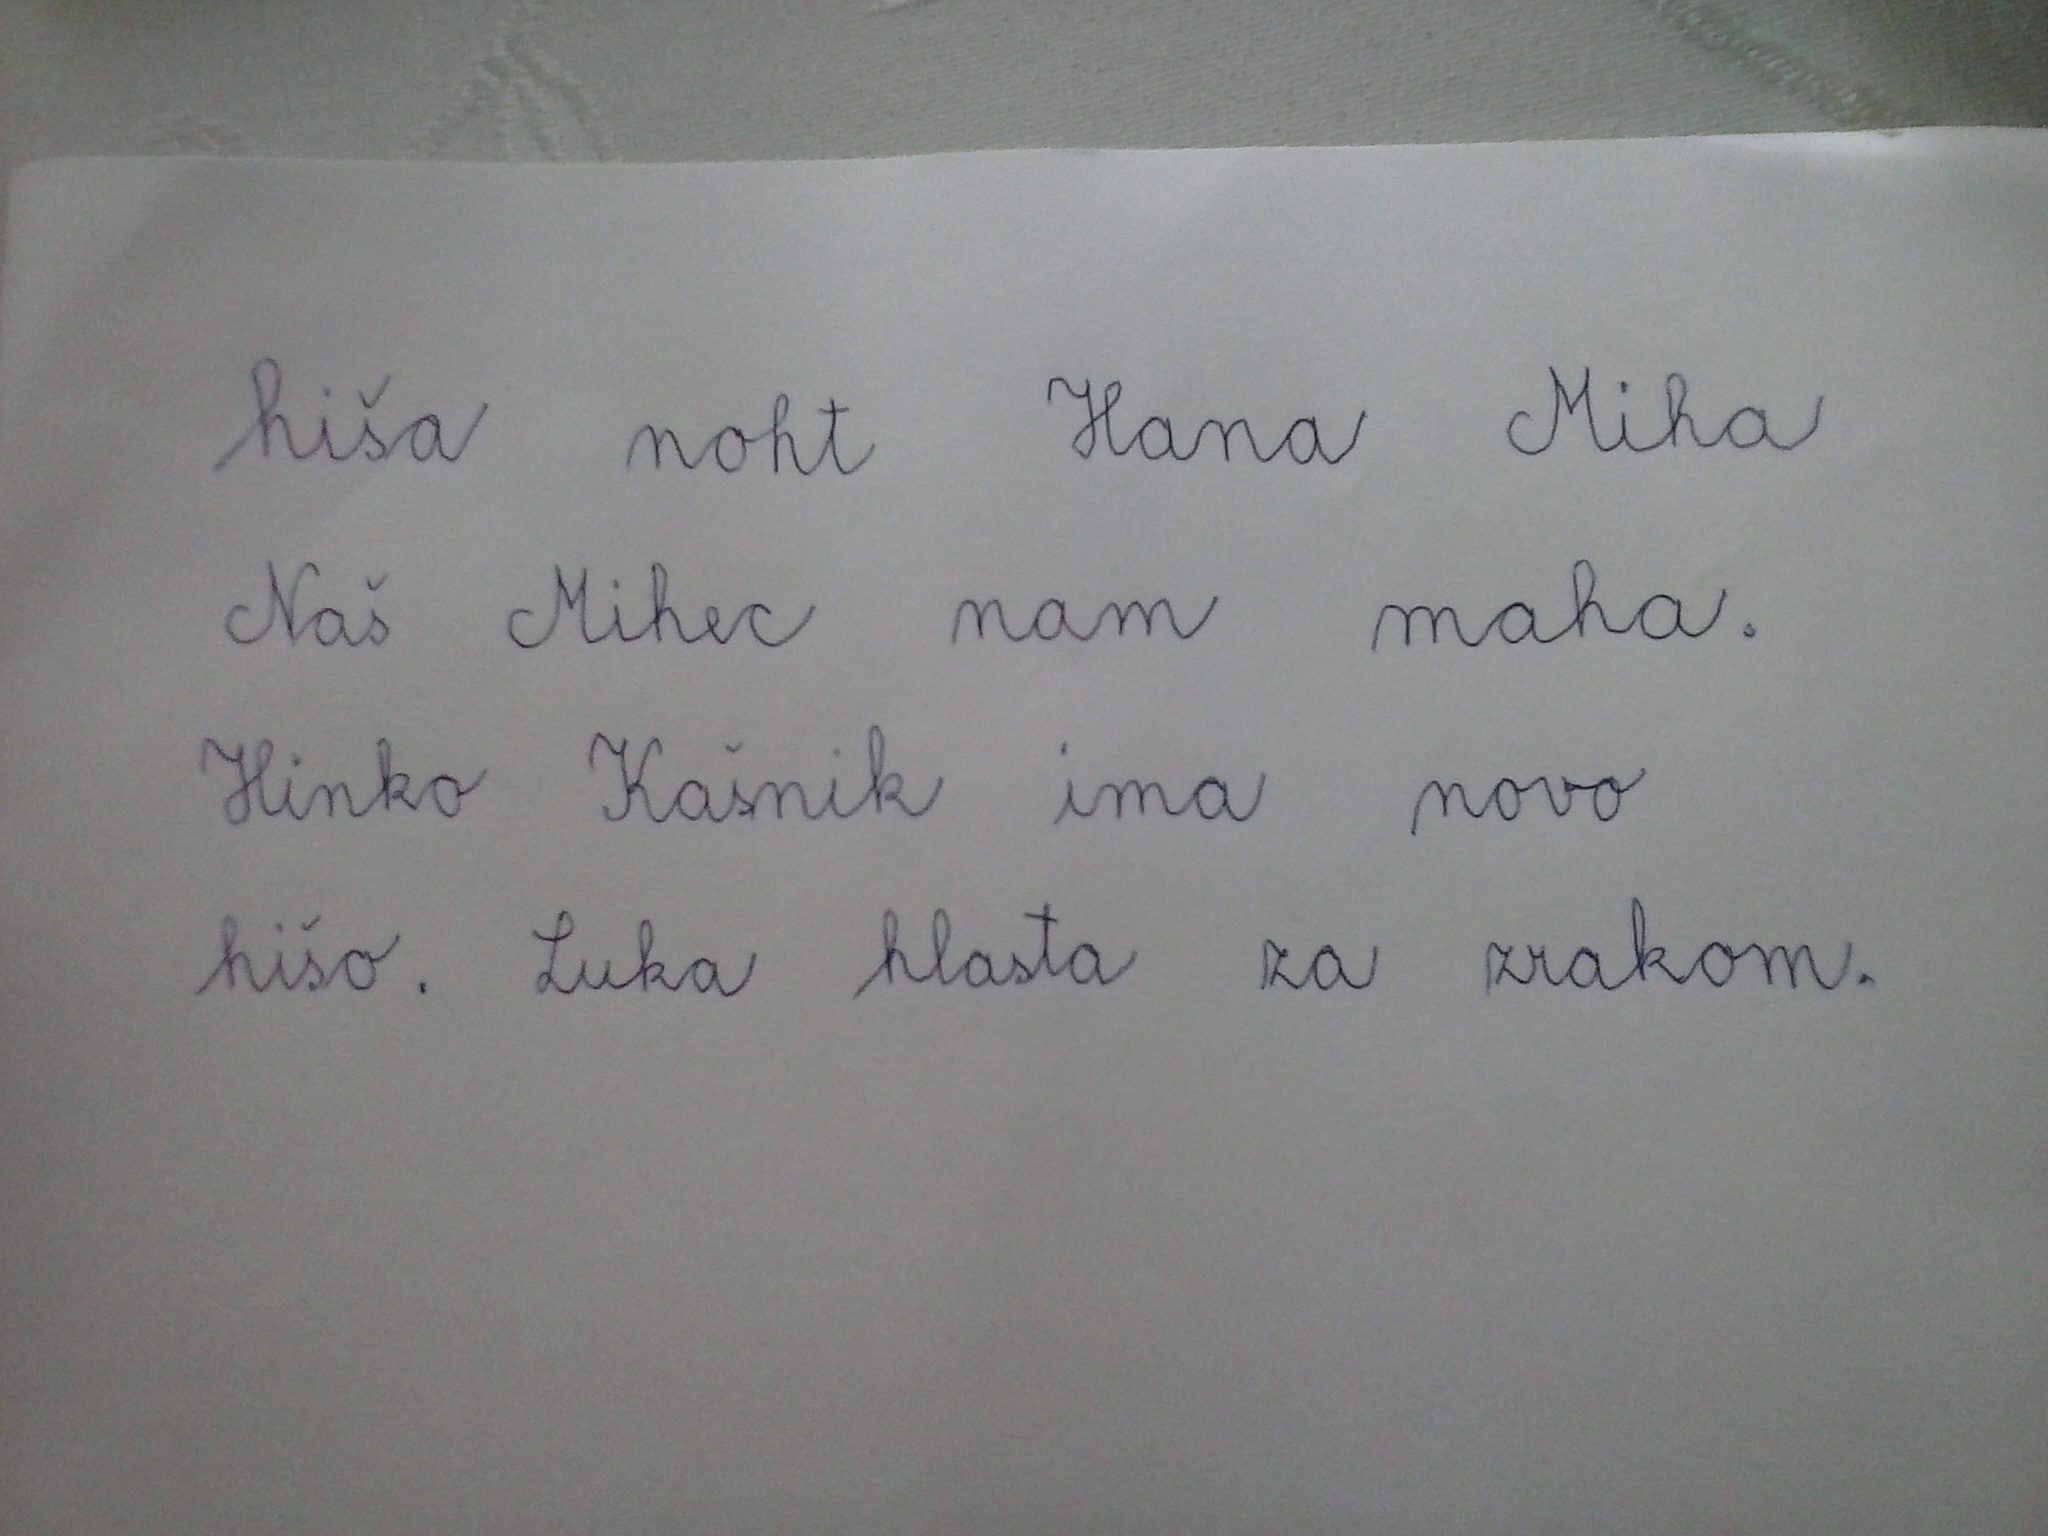 hiša noht Hana Miha
Naš Mihec nam maha.
Hinko Kašnik ima novo
hišo. Luka hlasta za zrakom.